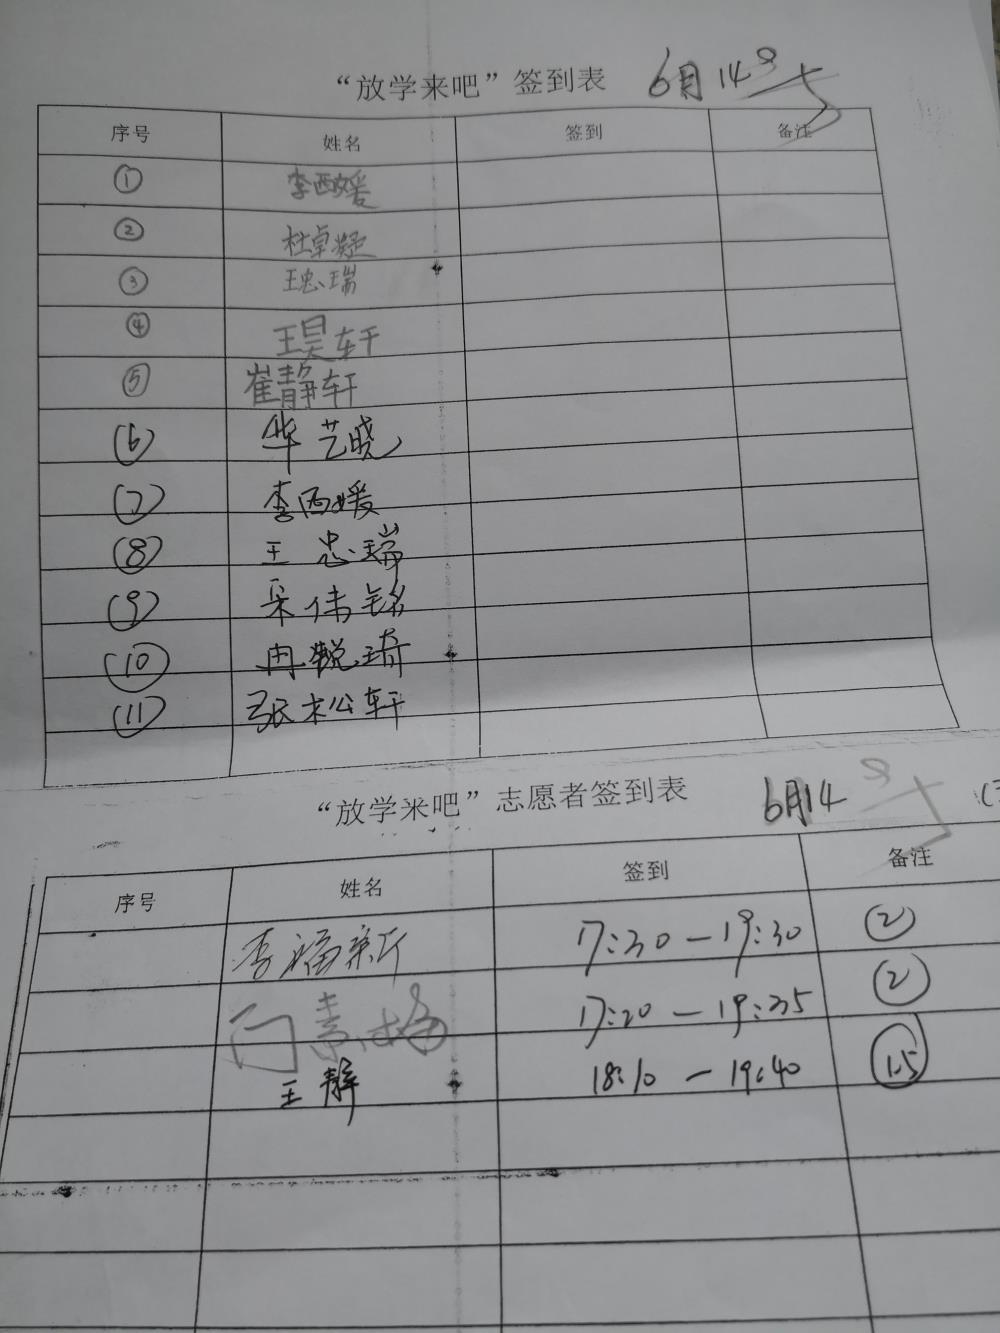 “放学来吧”签到表 6月14号
序号 姓名 签到 备注
① 李西媛
② 杜卓凝
③ 王忠瑞
④ 王昊轩
⑤ 崔静轩
⑥ 华艺晓
⑦ 李西媛
⑧ 王忠瑞
⑨ 宋伟铭
⑩ 冉锐琦
⑪ 张松轩
“放学来吧”志愿者签到表 6月14号
序号 姓名 签到 备注
李福新 17:30—19:30 ②
闫素梅 17:20—19:35 ②
王静 18:10—19:40 1.5